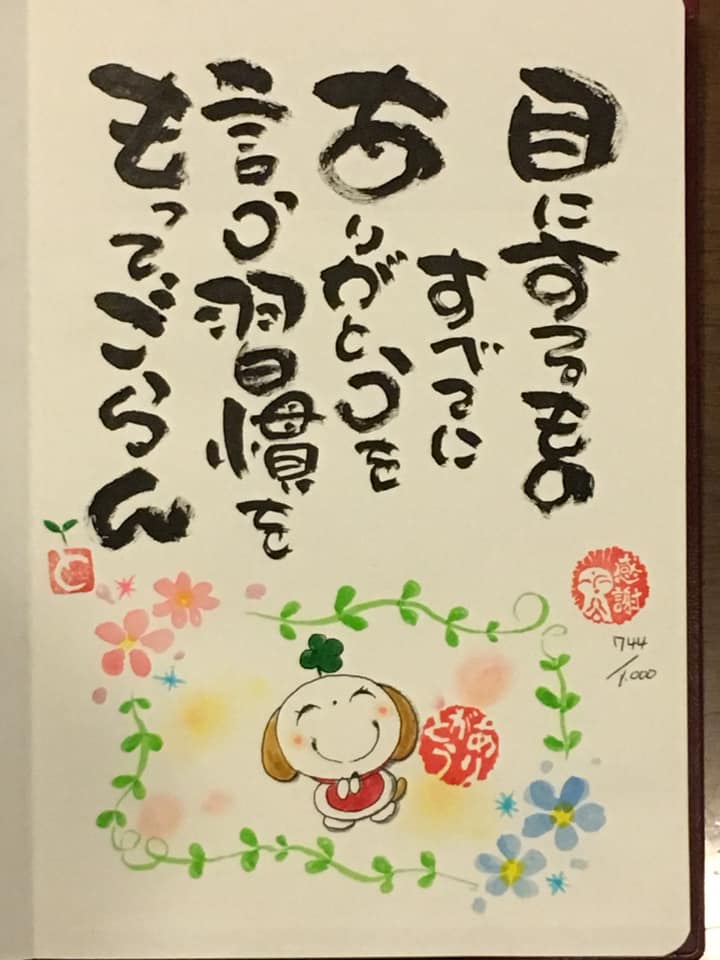 目にするもの
すべてに
ありがとうを
言う習慣を
もってごらん
感謝
744
/1,000
ありがとう